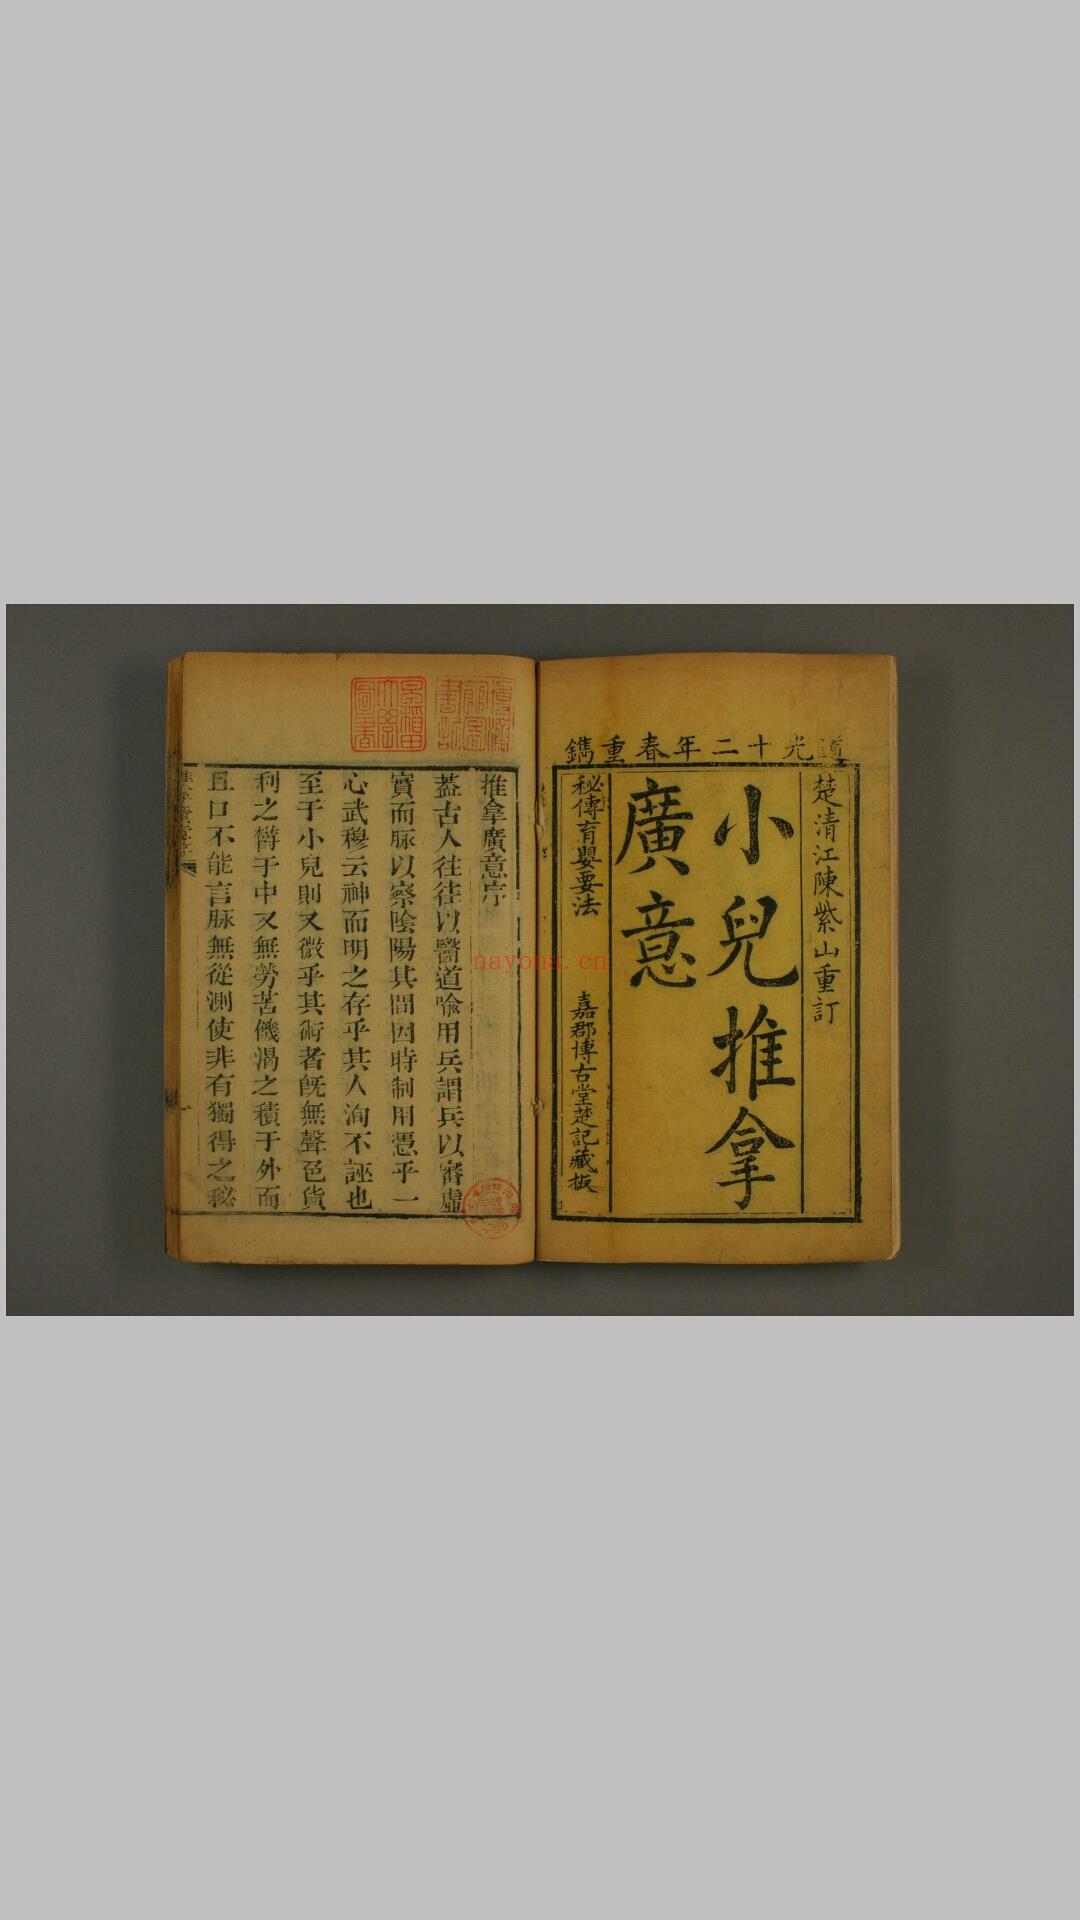 道光十二年春重鐫
楚清江陳紫山重訂
小兒推拿
廣意
秘傳育嬰要法
嘉郡博古堂楚記藏板
推拿廣意序
蓋古人往往以醫道喻用兵謂兵以審虛
實而脉以察陰陽其間因時制用憑乎一
心武穆云神而明之存乎其人洵不誣也
至于小兒則又微乎其術者旣無聲色貨
利之欝于中又無勞苦饑渴之積于外而
且口不能言脉無從測使非有獨得之秘
nayona.cn